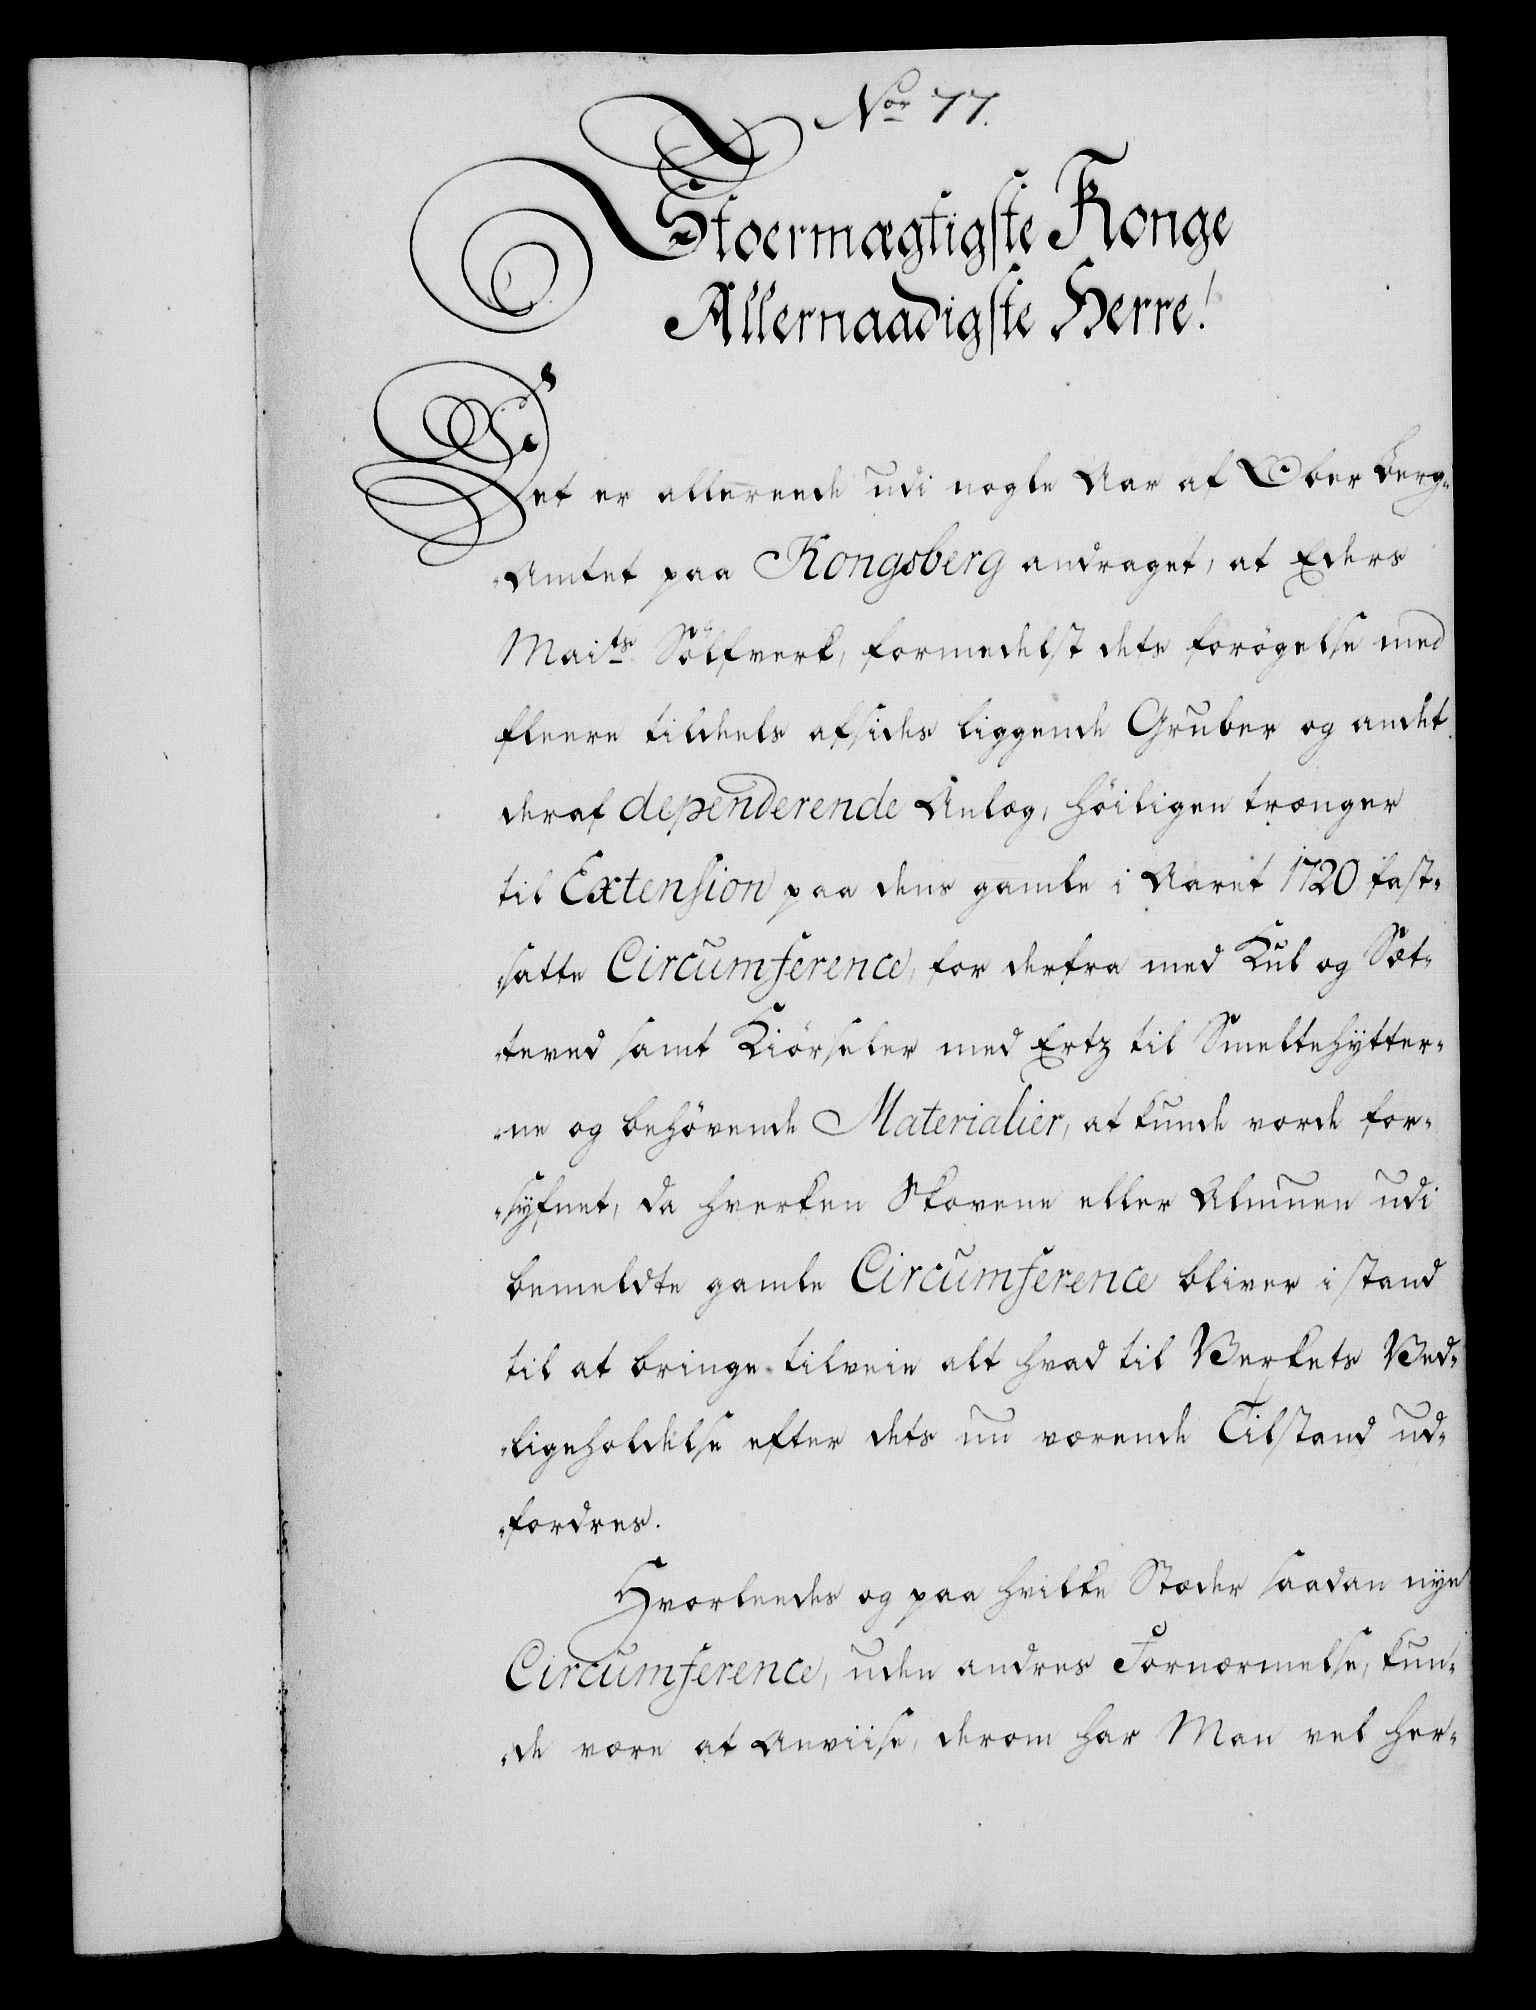 Nor 77.
Stoermægtigste Konge
Allernaadigste Herre!
Det er allereede udi nogle Aar af Ober Berg-
-Amtet paa Kongsberg andraget, at Eders
Maits. Sølfverk, formedelst dets forøgelse med
fleere tildeels afsides liggende Gruber og andet
deraf dependerende Anlæg, høiligen trænger
til Extension paa dens gamle i Aaret 1720 fast-
-satte Circumference, for derfra med Kul og Sæt-
-teved samt Kiørseler med Ertz til Smeltehytter-
-ne og behøvende Materialier, at kunde vorde for-
-syfnet, da hverken Skovene eller Almuen udi
bemeldte gamle Circumference bliver i stand
til at bringe tilveie alt hvad til Verkets Ved-
-ligeholdelse efter dets nu værende Tilstand ud-
-fordres.
Hvorleedes og paa hvilke Stæder saadan nye
Circumference, uden andres Fornærmelse, kun-
-de være at Anviise, derom har Man vel her-